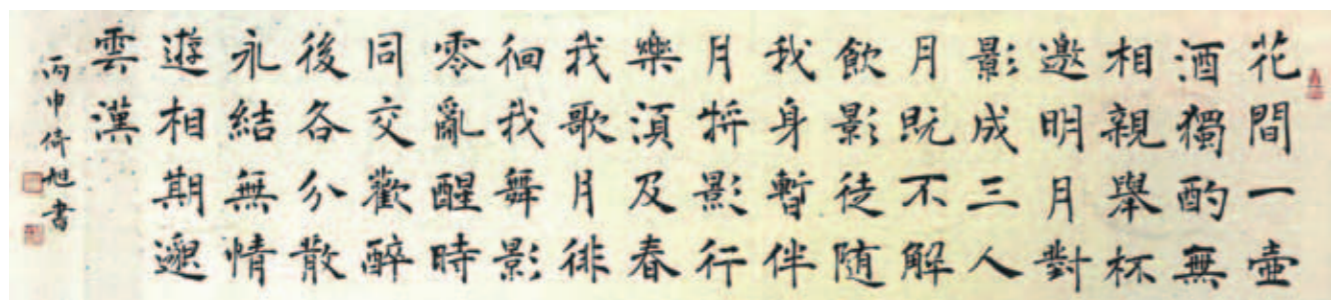 花間一壺
酒獨酌無
相親舉杯
邀明月對
影成三人
月既不解
飲影徒随
我身暫伴
月將影行
樂須及春
我歌月徘
徊我舞影
零亂醒時
同交歡醉
後各分散
永結無情
遊相期邈
雲漢
丙申倚旭書